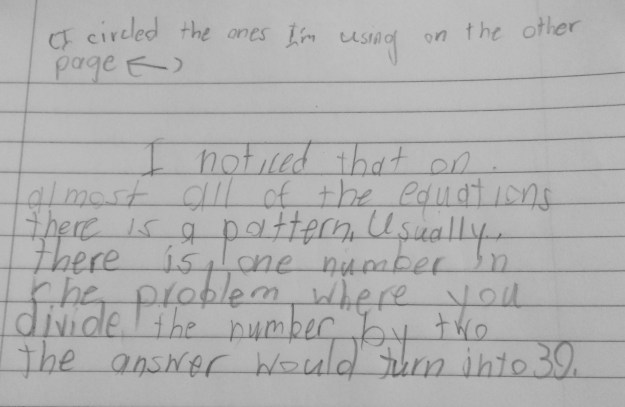 (I circled the ones I'm using on the other
page ←)
I noticed that on
almost all of the equations
there is a pattern. Usually,
there is one number in
the problem where you
divide the number by two
the answer would turn into 30.